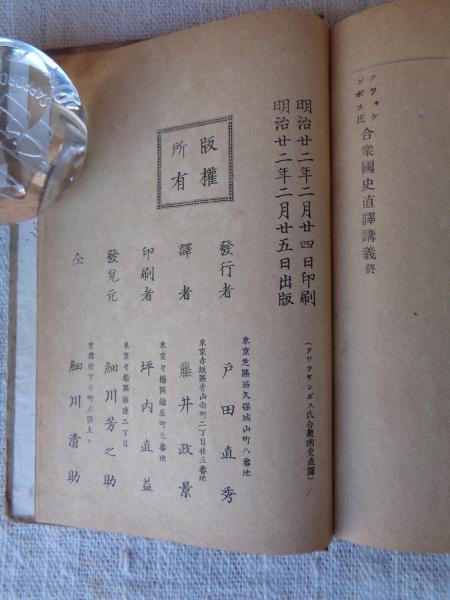 クワッケンボス氏 合衆國史直譯講義 終
明治廿二年二月廿四日印刷
明治廿二年二月廿五日出版
(クワツケンボス氏合衆國史直譯)
版權所有
東京芝區西久保城山町八番地
發行者 戸田直秀
東京赤坂區青山南町二丁目廿三番地
譯者 藤井政景
印刷者 坪内直益
東京京橋區銀座二丁目
發兌元 細川芳之助
仝 細川清助